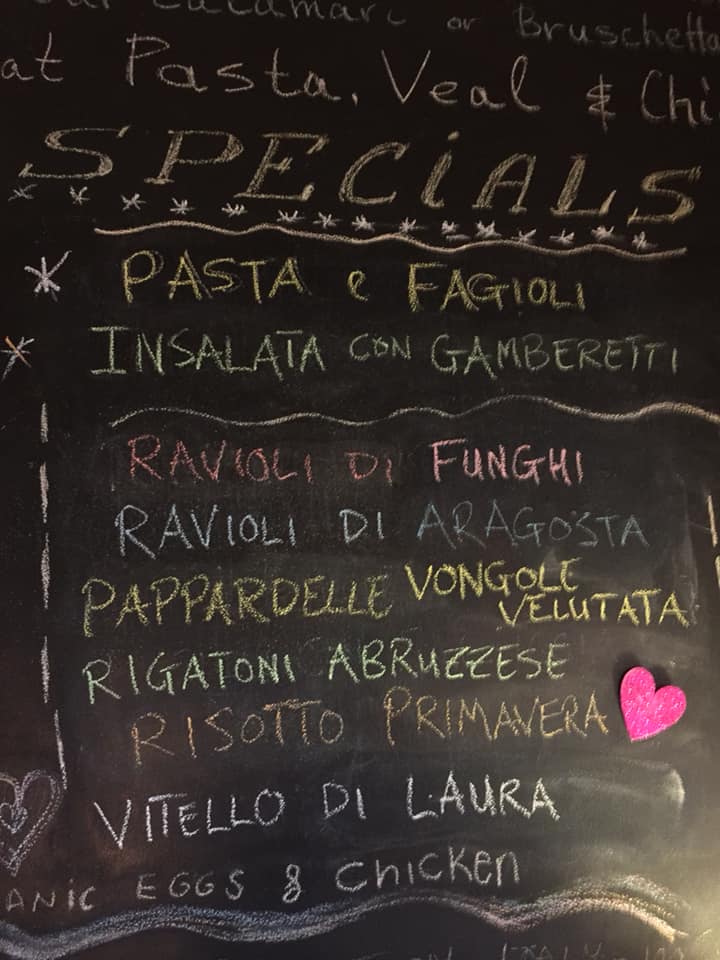 Calamari or Bruschetta
at Pasta, Veal & Chi
SPECiALS
PASTA e FAGIOLI
INSALATA CON GAMBERETTI
RAVIOLI DI FUNGHI
RAVIOLI DI ARAGOSTA
PAPPARDELLE VONGOLE VELUTATA
RIGATONI ABRUZZESE
RISOTTO PRIMAVERA
VITELLO DI LAURA
ANIC EGGS & CHICKEN